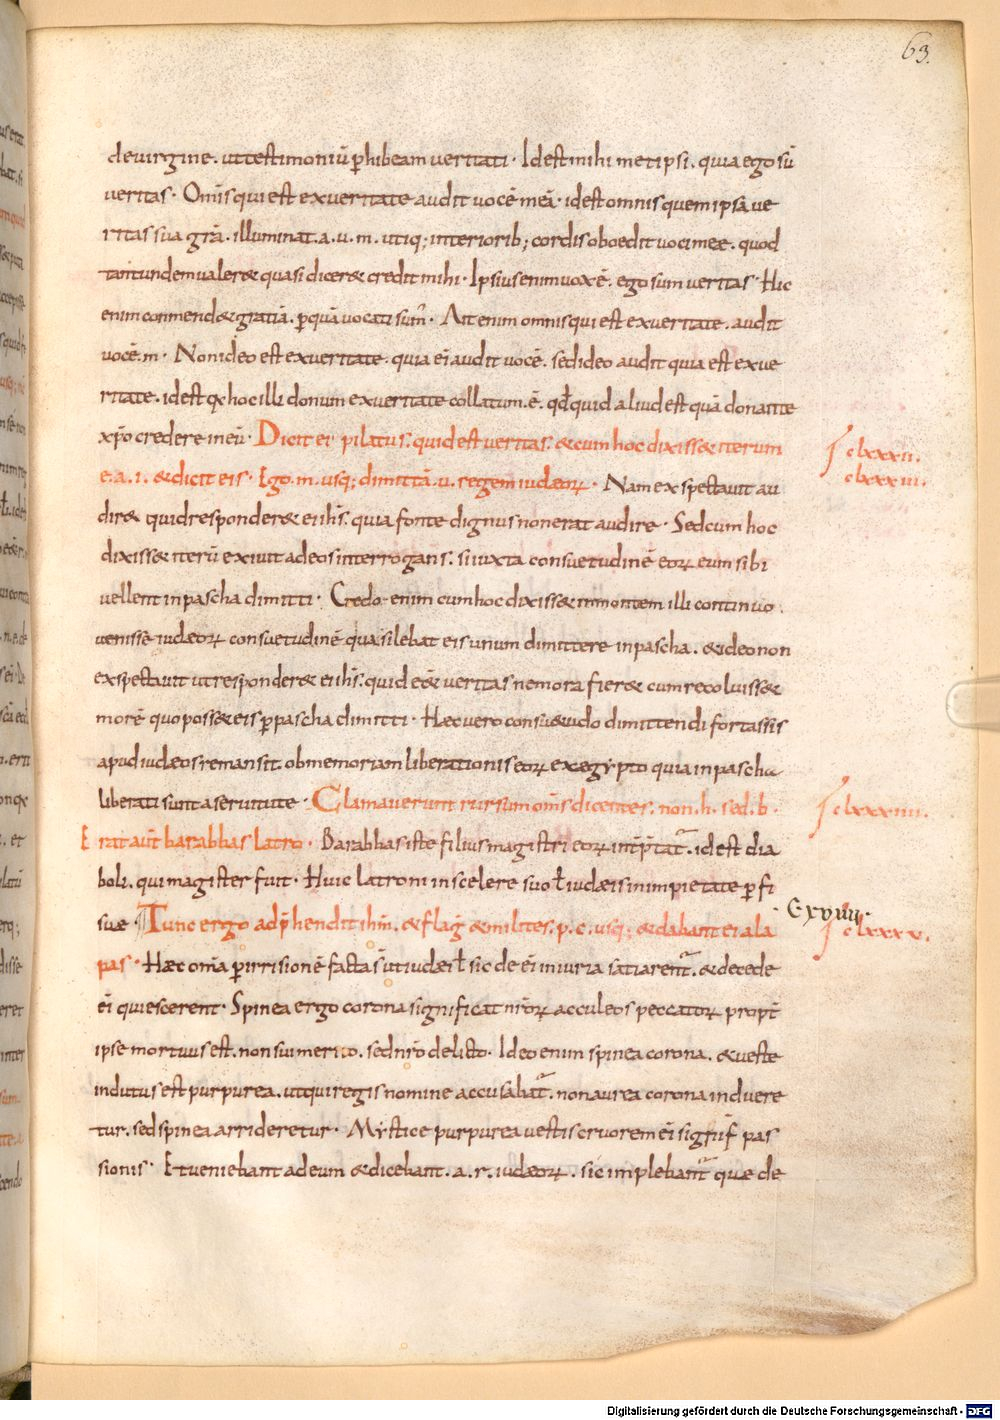 63.
de virgine. ut testimoniū ꝑhibeam veritati · Id est mihi met ipsi. quia ego sū
veritas · Om̅is qui est ex veritate audit vocē meā · id est omnis quem ipsa ve
ritas sua gr̅a. illuminat. a. u. m. utiq; interiorib; cordis oboedit voci meę. quod
tantundem valer& quasi dicer& credit mihi · Ipsius enim vox ē. ego sum veritas · Hic
enim commend& gratiā. ꝑ quā vocati sum̅ · Ait enim omnis qui est ex veritate. audit
vocē. m · Non ideo est ex veritate. quia ei audit vocē. sed ideo audit quia est ex ve
ritate. id est qꝫ hoc illi donum ex veritate collatum. ē. qđ quid aliud est quā donante
xp̄o credere in eū · Dicit ei pilatus. quid est veritas. & cum hoc dixiss& iterum
e. a. i. & dicit eis · Ego. m. usq; dimittā. u. regem iudæoꝝ · Nam exspectavit au
dire quid responder& ei ih̅s. quia fonte dignus non erat audire · Sed cum hoc
dixiss& iterū exivit ad eos interrogans. si iuxta consuetudinē eoꝝ eum sibi
vellent in pascha dimitti · Credo enim cum hoc dixiss& in montem illi continuo.
venisse iudæoꝝ consuetudinē qua silebat eis unum dimittere in pascha. & ideo non
exspectavit ut responder& ei ih̅s. quid e&̅ veritas ne mora fier& cum recoluiss&
morē quo poss& eis ꝑ pascha dimitti · Hæc vero consu&udo dimittendi fortassis
apud iudæos remansit. ob memoriam liberationis eoꝝ ex egypto quia in pascha
liberati sunt a servitute · Clamaverunt rursum om̅s dicentes. non. h. sed. b ·
Erat aut̅ barabbas latro · Barabbas iste filius magistri eoꝝ int̅p̅tat̅. id est dia
boli. qui magister fuit · Huic latroni in scelere suo ł iudæis in impietate ꝑfi
suæ · Tunc ergo adp̅hendit ih̅m. & flag̅ & milites. p. c. usq; & dabant ei ala
pas · Hæc om̅a ꝑ irrisionē facta s̅ ut iudæi ł sic de ei̅ iniuria satiarent̅. & de cede
ei̅ quiescerent · Spinea ergo corona significat nr̅oꝝ acculeos peccatoꝝ propt̅
ipse mortuus est. non sui merito. sed nr̅o delicto · Ideo enim spinea corona. & veste
indutus est purpurea. ut qui regis nomine accusabat̅. non aurea corona induere
tur. sed spinea arrideretur · Mystice purpurea vestis cruorem ei̅ signif̅ pas
sionis · Et veniebant ad eum & dicebant. a. r. iudæoꝝ. sic implebant̅ quæ de
clxxxii.
clxxxiii.
clxxxiiii.
clxxxv.
Digitalisierung gefördert durch die Deutsche Forschungsgemeinschaft - DFG